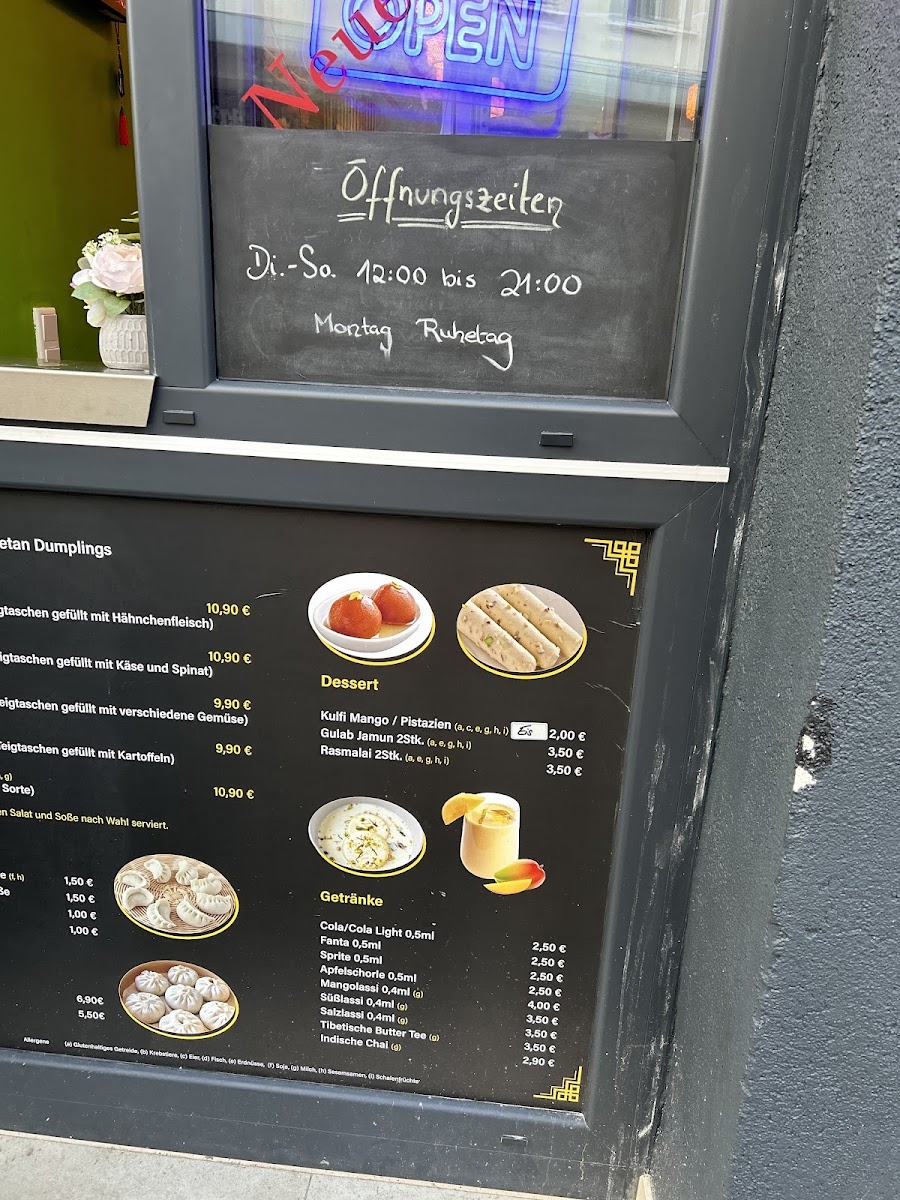 OPEN
Neue
Öffnungszeiten
Di.-So. 12:00 bis 21:00
Montag Ruhetag
etan Dumplings
10,90 €
gtaschen gefüllt mit Hähnchenfleisch)
10,90 €
igtaschen gefüllt mit Käse und Spinat)
9,90 €
eigtaschen gefüllt mit verschiedene Gemüse)
9,90 €
Teigtaschen gefüllt mit Kartoffeln)
, g)
10,90 €
Sorte)
en Salat und Soße nach Wahl serviert.
e (f, h) 1,50 €
ße 1,50 €
1,00 €
1,00 €
6,90€
5,50€
Dessert
Kulfi Mango / Pistazien (a, c, e, g, h, i) Eis 2,00 €
Gulab Jamun 2Stk. (a, e, g, h, i) 3,50 €
Rasmalai 2Stk. (a, e, g, h, i) 3,50 €
Getränke
Cola/Cola Light 0,5ml 2,50 €
Fanta 0,5ml 2,50 €
Sprite 0,5ml 2,50 €
Apfelschorle 0,5ml 2,50 €
Mangolassi 0,4ml (g) 4,00 €
Süßlassi 0,4ml (g) 3,50 €
Salzlassi 0,4ml (g) 3,50 €
Tibetische Butter Tee (g) 3,50 €
Indische Chai (g) 2,90 €
Allergene (a) Glutenhaltiges Getreide, (b) Krebstiere, (c) Eier, (d) Fisch, (e) Erdnüsse, (f) Soja, (g) Milch, (h) Sesamsamen, (i) Schalenfrüchte